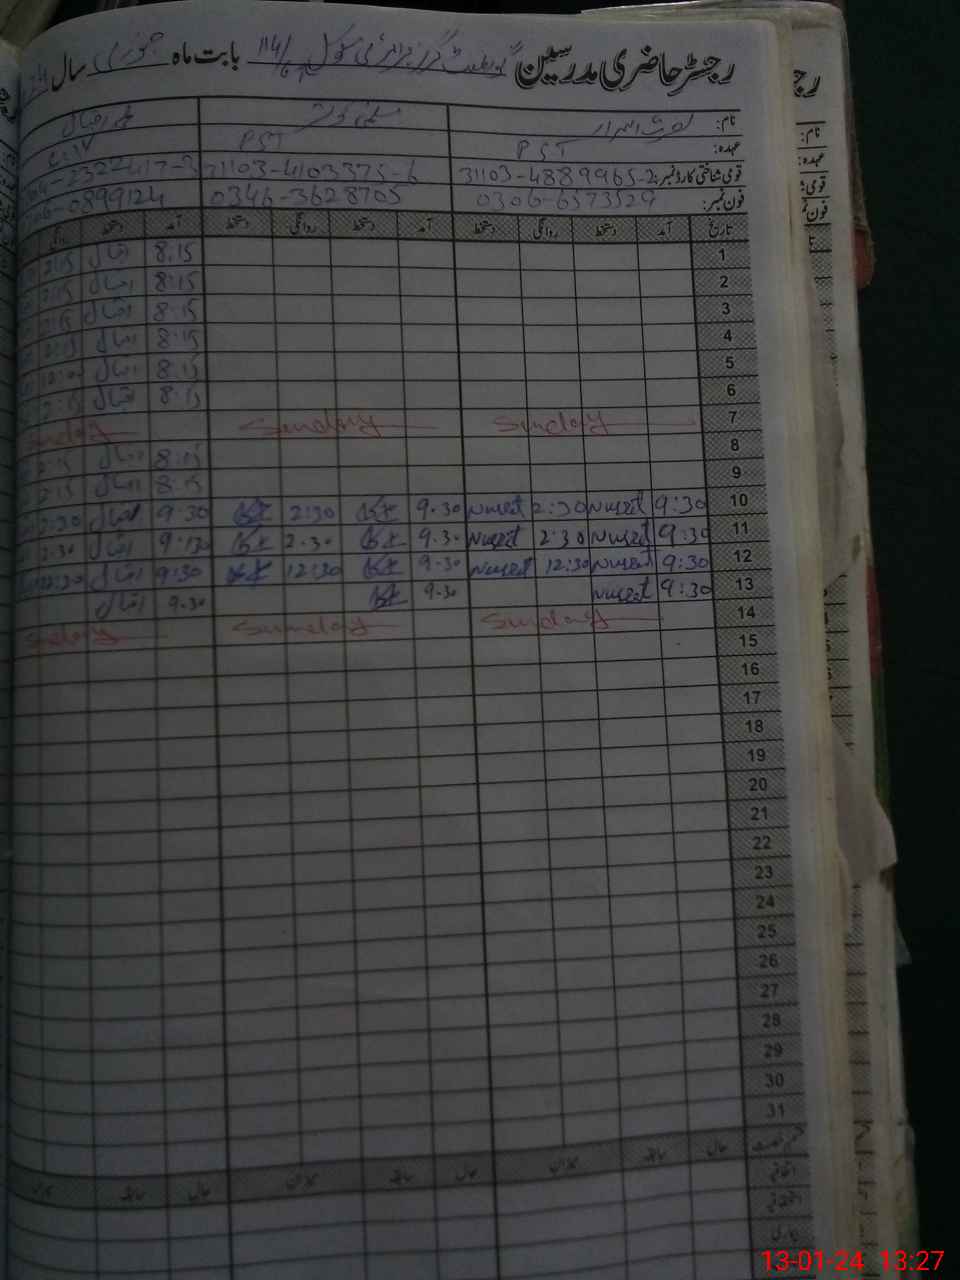 رجسٹر حاضری مدرسین گورنمنٹ گرلز پرائمری سکول 114/6R بابت ماہ جنوری سال
نام: نصرت اسرار
عہدہ: PST PST C.IV
قومی شناختی کارڈ نمبر: 31103-4889965-2 31103-4103375-6 2322417-3
فون نمبر: 0306-6373529 0346-3628705 0899124
تاریخ آمد دستخط روانگی دستخط آمد دستخط روانگی دستخط آمد دستخط روانگی
1 8:15 اقبال 2:15
2 8:15 اقبال 2:15
3 8:15 اقبال 2:15
4 8:15 اقبال 2:15
5 8:15 اقبال 12:00
6 8:15 اقبال 2:15
7 Sunday Sunday Sunday
8 8:15 اقبال 2:15
9 8:15 اقبال 2:15
10 9:30 Nusrat 2:30 Nusrat 9.30 2:30 9.30 اقبال 2:30
11 9:30 Nusrat 2:30 Nusrat 9.30 2.30 9:30 اقبال 2:30
12 9:30 Nusrat 12:30 Nusrat 9.30 12:30 9:30 اقبال 12:30
13 9:30 Nusrat 9.30 9.30 اقبال
14 Sunday Sunday Sunday
15
16
17
18
19
20
21
22
23
24
25
26
27
28
29
30
31
حال سابقہ میزان حال سابقہ میزان حال سابقہ
اتفاقیہ
بیماری
13-01-24 13:27